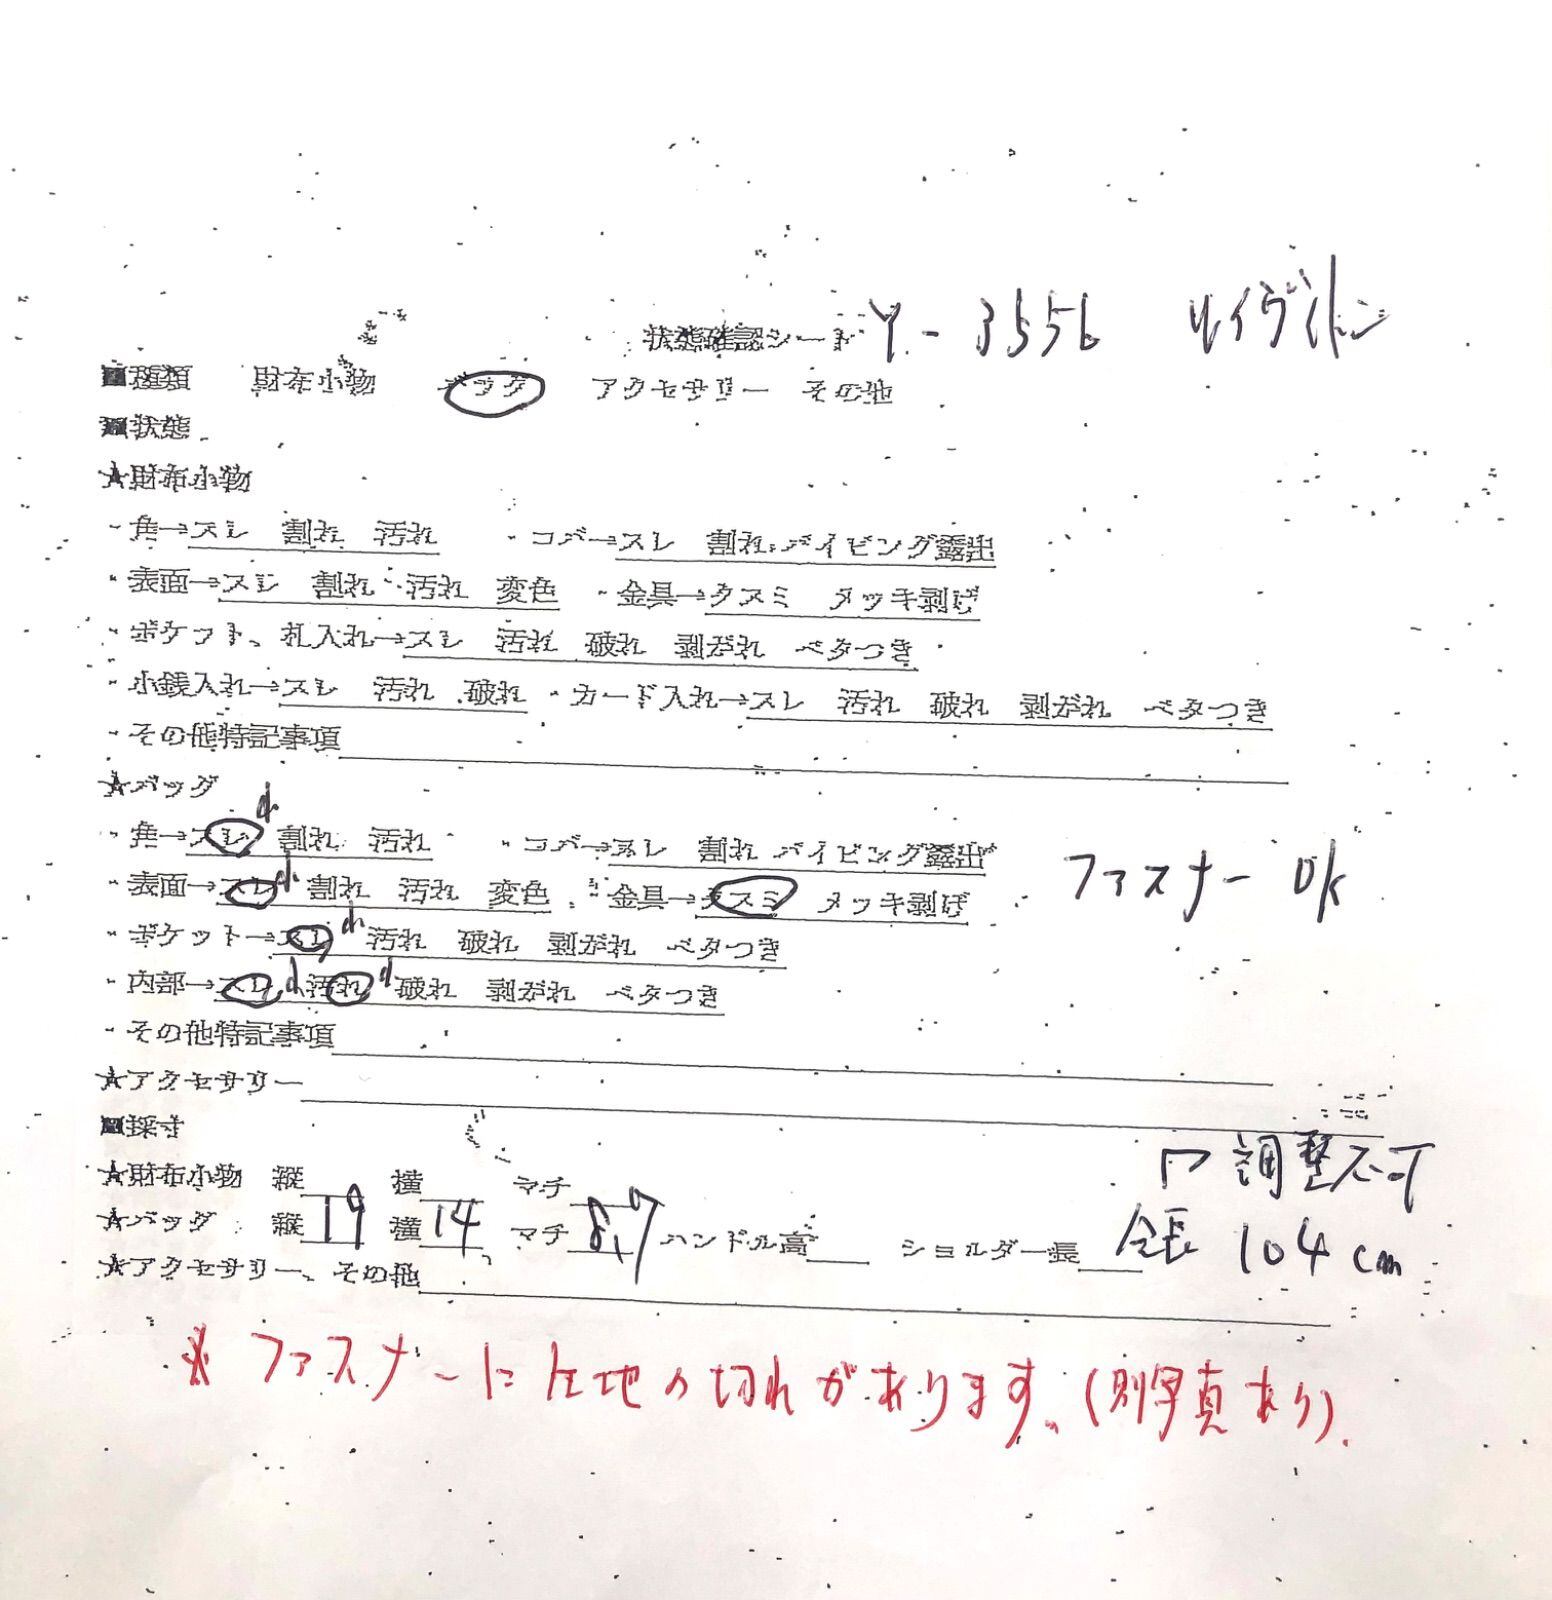 状態確認シート Y-3556 ルイヴィトン
■種類 財布小物 バッグ アクセサリー その他
■状態
★財布小物
・角→スレ 割れ 汚れ ・コバ→スレ 割れ パイピング露出
・表面→スレ 割れ 汚れ 変色 ・金具→クスミ メッキ剥げ
・ポケット、札入れ→スレ 汚れ 破れ 剥がれ ベタつき
・小銭入れ→スレ 汚れ 破れ ・カード入れ→スレ 汚れ 破れ 剥がれ ベタつき
・その他特記事項
★バッグ
・角→スレ小 割れ 汚れ ・コバ→スレ 割れ パイピング露出
・表面→スレ小 割れ 汚れ 変色 ・金具→クスミ メッキ剥げ ファスナー OK
・ポケット→スレ小 汚れ 破れ 剥がれ ベタつき
・内部→スレ小 汚れ小 破れ 剥がれ ベタつき
・その他特記事項
★アクセサリー
■採寸
★財布小物 縦 横 マチ 調整不可
★バッグ 縦 19 横 14 マチ 8.7 ハンドル高 ショルダー長 全長 104cm
★アクセサリー、その他
※ファスナーに生地の切れがあります。(別写真あり).